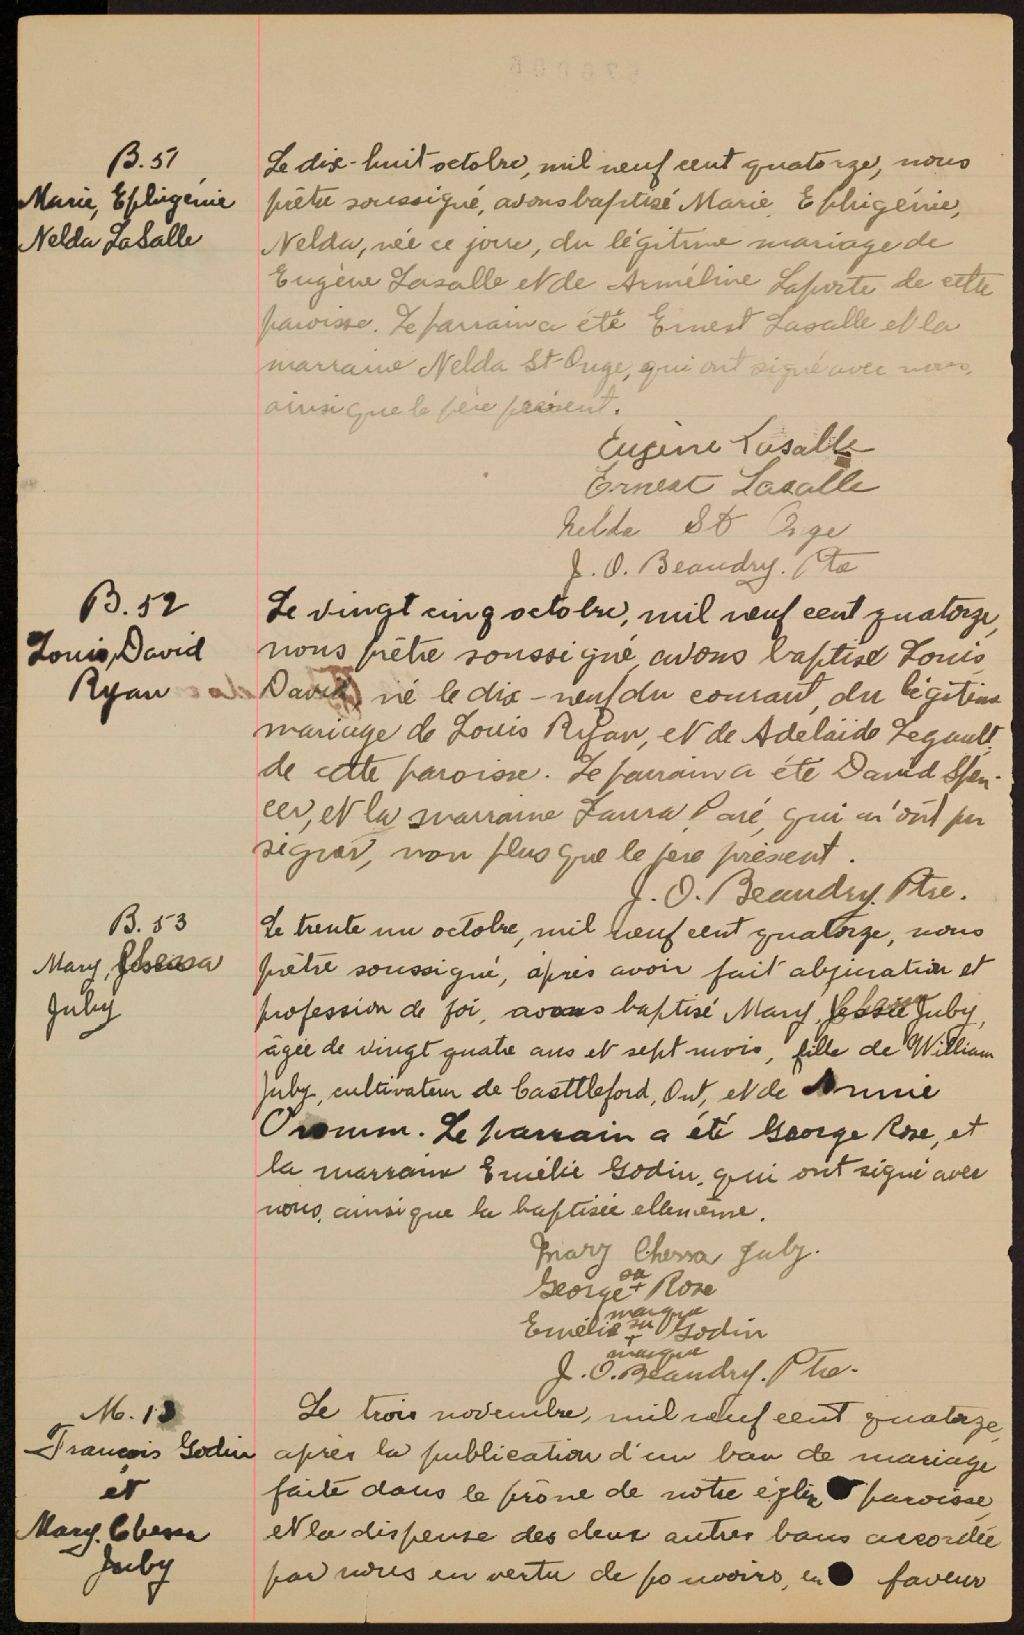 B. 51
Marie, Ephigénie
Nelda LaSalle
Le dix-huit octobre, mil neuf cent quatorze, nous
prêtre soussigné, avons baptisé Marie, Ephigénie,
Nelda, née ce jour, du légitime mariage de
Eugène Lasalle et de Arméline Laporte de cette
paroisse. Le parrain a été Ernest Lasalle et la
marraine Nelda St Onge, qui ont signé avec nous,
ainsi que le père présent.
Eugène Lasalle
Ernest Lasalle
Nelda St Onge
J. O. Beaudry. Ptre
B. 52
Louis, David
Ryan
Le vingt cinq octobre, mil neuf cent quatorze,
nous prêtre soussigné, avons baptisé Louis
David, né le dix-neuf du courant, du légitime
mariage de Louis Ryan, et de Adélaïde Legault,
de cette paroisse. Le parrain a été David Spen-
cer, et la marraine Laura Paré, qui n'ont pu
signer, non plus que le père présent.
J. O. Beaudry. Ptre.
B. 53
Mary, Chessa
Juby
Le trente un octobre, mil neuf cent quatorze, nous
prêtre soussigné, après avoir fait abjuration et
profession de foi, avons baptisé Mary, Juby,
âgée de vingt quatre ans et sept mois, fille de William
Juby, cultivateur de Casttleford, Ont, et de Annie
Le parrain a été George Rose, et
la marraine Emélie Godin, qui ont signé avec
nous, ainsi que la baptisée ellemême.
Mary Chessa Juby.
George sa + marque Rose
Emélie sa + marque Godin
J. O. Beaudry. Ptre.
M. 13
François Godin
et
Mary Chessa
Juby
Le trois novembre, mil neuf cent quatorze,
après la publication d'un ban de mariage
faite dans le prône de notre église paroisse,
et la dispense des deux autres bans accordée
par nous en vertu de pouvoirs, en faveur